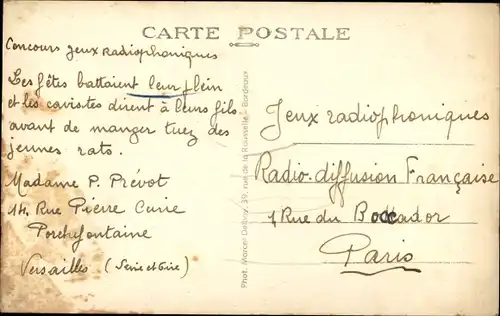 CARTE POSTALE
Concours Jeux radiophoniques
Les fêtes battaient leur plein
et les cavistes dirent à leurs fils
avant de manger tuez des
jeunes rats.
Madame P. Prévot
14, Rue Pierre Curie
Porchefontaine
Versailles (Seine et Oise)
Phot. Marcel Delboy, 39, rue de la Rousselle - Bordeaux
Jeux radiophoniques
Radio-diffusion Française
1 Rue du Boccador
Paris